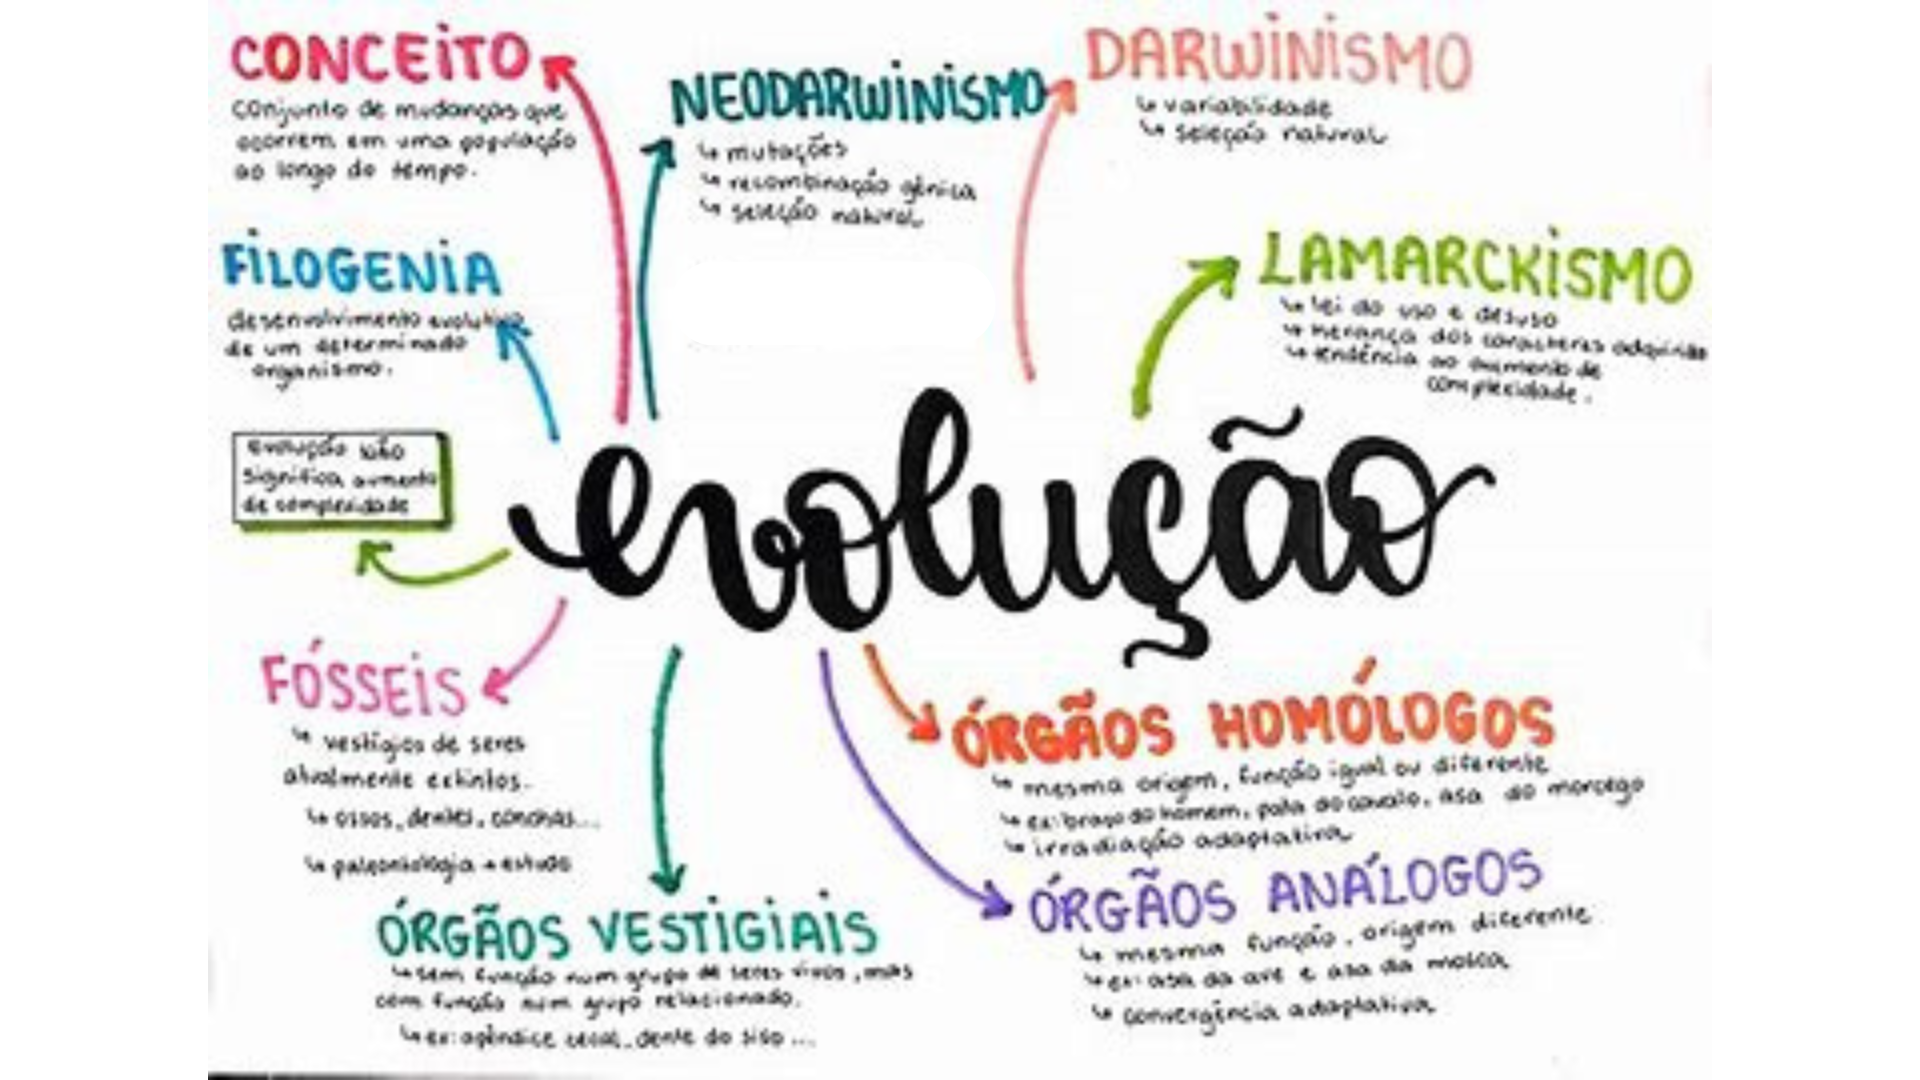 CONCEITO
conjunto de mudanças que
ocorrem em uma população
ao longo do tempo.
NEODARWINISMO
↳ mutações
↳ recombinação gênica
↳ seleção natural
DARWINISMO
↳ variabilidade
↳ seleção natural
FILOGENIA
desenvolvimento evolutivo
de um determinado
organismo.
LAMARCKISMO
↳ lei do uso e desuso
↳ herança dos caracteres adquiridos
↳ tendência ao aumento de
complexidade.
evolução não
significa aumento
de complexidade
evolução
FÓSSEIS
↳ vestígios de seres
atualmente extintos.
↳ ossos, dentes, conchas...
↳ paleontologia → estudo
ÓRGÃOS HOMÓLOGOS
↳ mesma origem, função igual ou diferente
↳ ex: braço do homem, pata do cavalo, asa do morcego
↳ irradiação adaptativa
ÓRGÃOS ANÁLOGOS
↳ mesma função, origem diferente
↳ ex: asa da ave e asa da mosca
↳ convergência adaptativa
ÓRGÃOS VESTIGIAIS
↳ sem função num grupo de seres vivos, mas
com função num grupo relacionado.
↳ ex: apêndice cecal, dente do siso ...